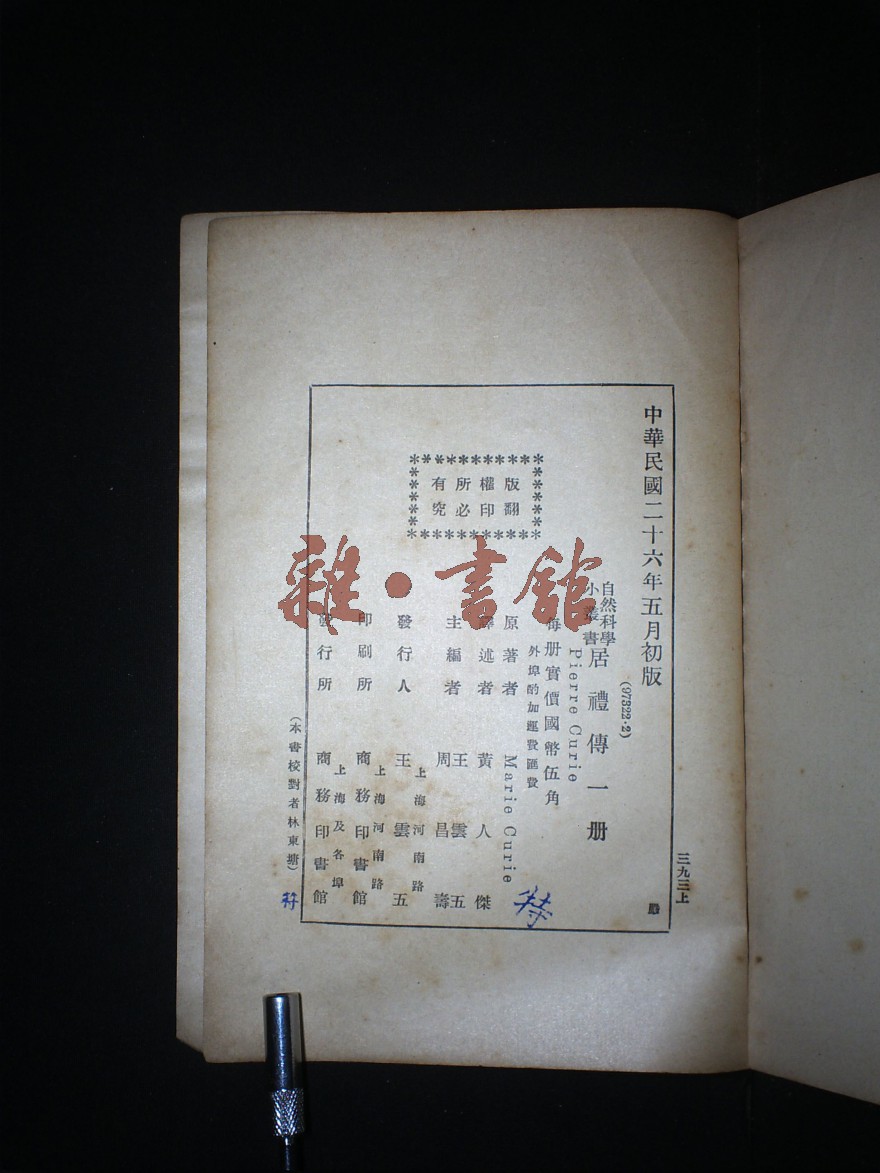 中華民國二十六年五月初版
三九三上
(97322·2)
自然科學
小叢書
居禮傳一册
Pierre Curie
每册實價國幣伍角
外埠酌加運費匯費
原著者 Marie Curie
譯述者 黃人傑
主編者 王雲五
周昌壽
上海河南路
發行人 王雲五
上海河南路
印刷所 商務印書館
上海及各埠
發行所 商務印書館
版權所有
翻印必究
(本書校對者林東塘)
雜·書館